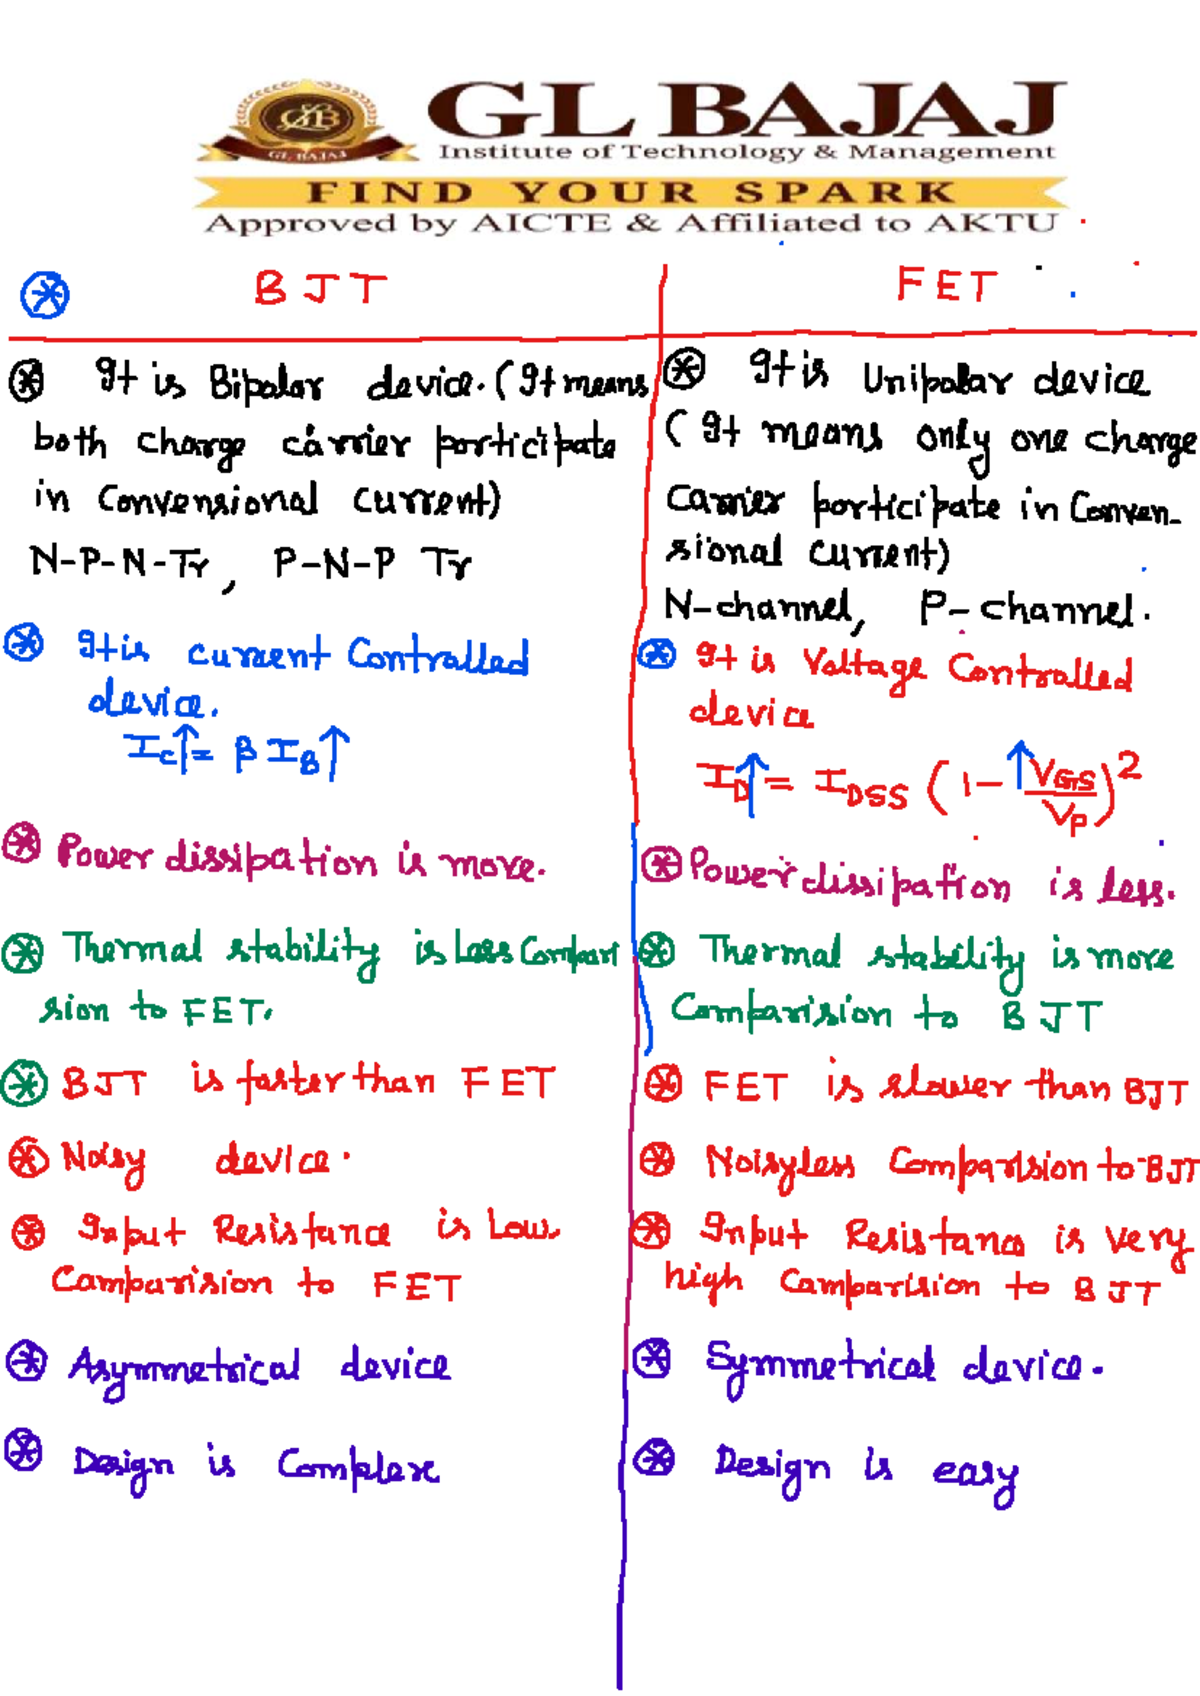 GL BAJAJ
GL BAJAJ
Institute of Technology & Management
FIND YOUR SPARK
Approved by AICTE & Affiliated to AKTU
BJT
It is Bipolar device. (It means
both charge carrier participate
in Convensional current)
N-P-N-Tr, P-N-P Tr
It is current Controlled
device.
IC↑ = β IB↑
Power dissipation is more.
Thermal stability is Less Compari
sion to FET.
BJT is faster than FET
Noisy device.
Input Resistance is Low
Comparision to FET
Asymmetrical device
Design is Complex
FET
It is Unipolar device
( It means only one charge
Carrier participate in Conven-
sional current)
N-channel, P-channel.
It is Voltage Controlled
device
ID↑ = IDSS (1-↑VGS/VP)²
Power dissipation is less.
Thermal stability is more
Comparision to BJT
FET is slower than BJT
Noisyless Comparision to BJT
Input Resistance is very
high Comparision to BJT
Symmetrical device.
Design is easy